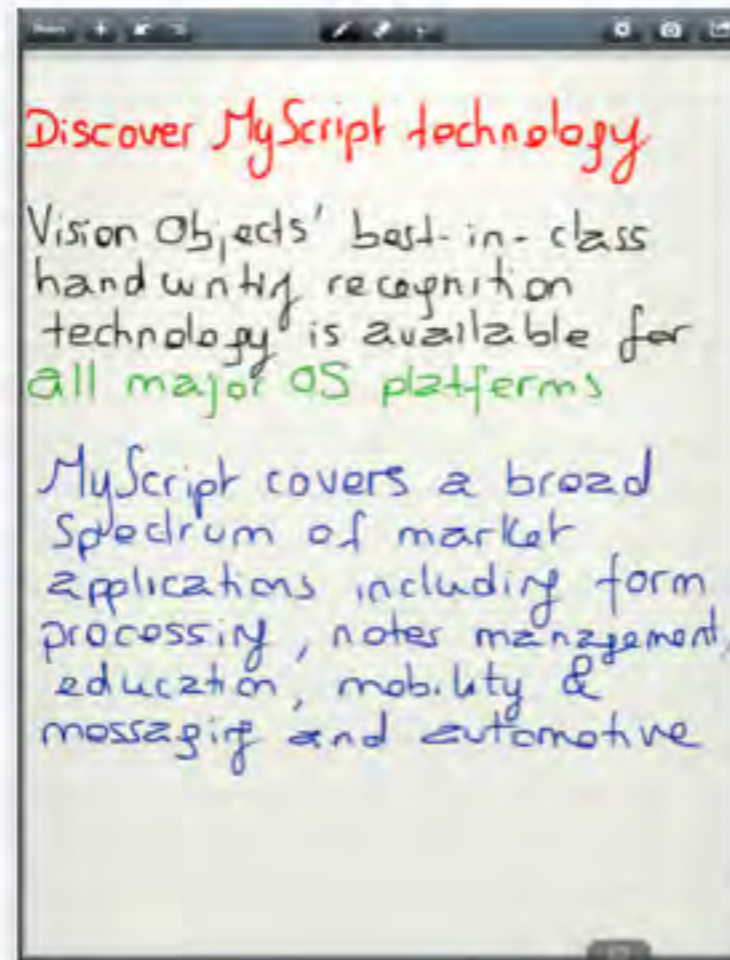 Discover MyScript technology
Vision Objects' best-in-class
handwriting recognition
technology is available for
all major OS platforms
MyScript covers a broad
spectrum of market
applications including form
processing, notes management,
education, mobility &
messaging and automotive